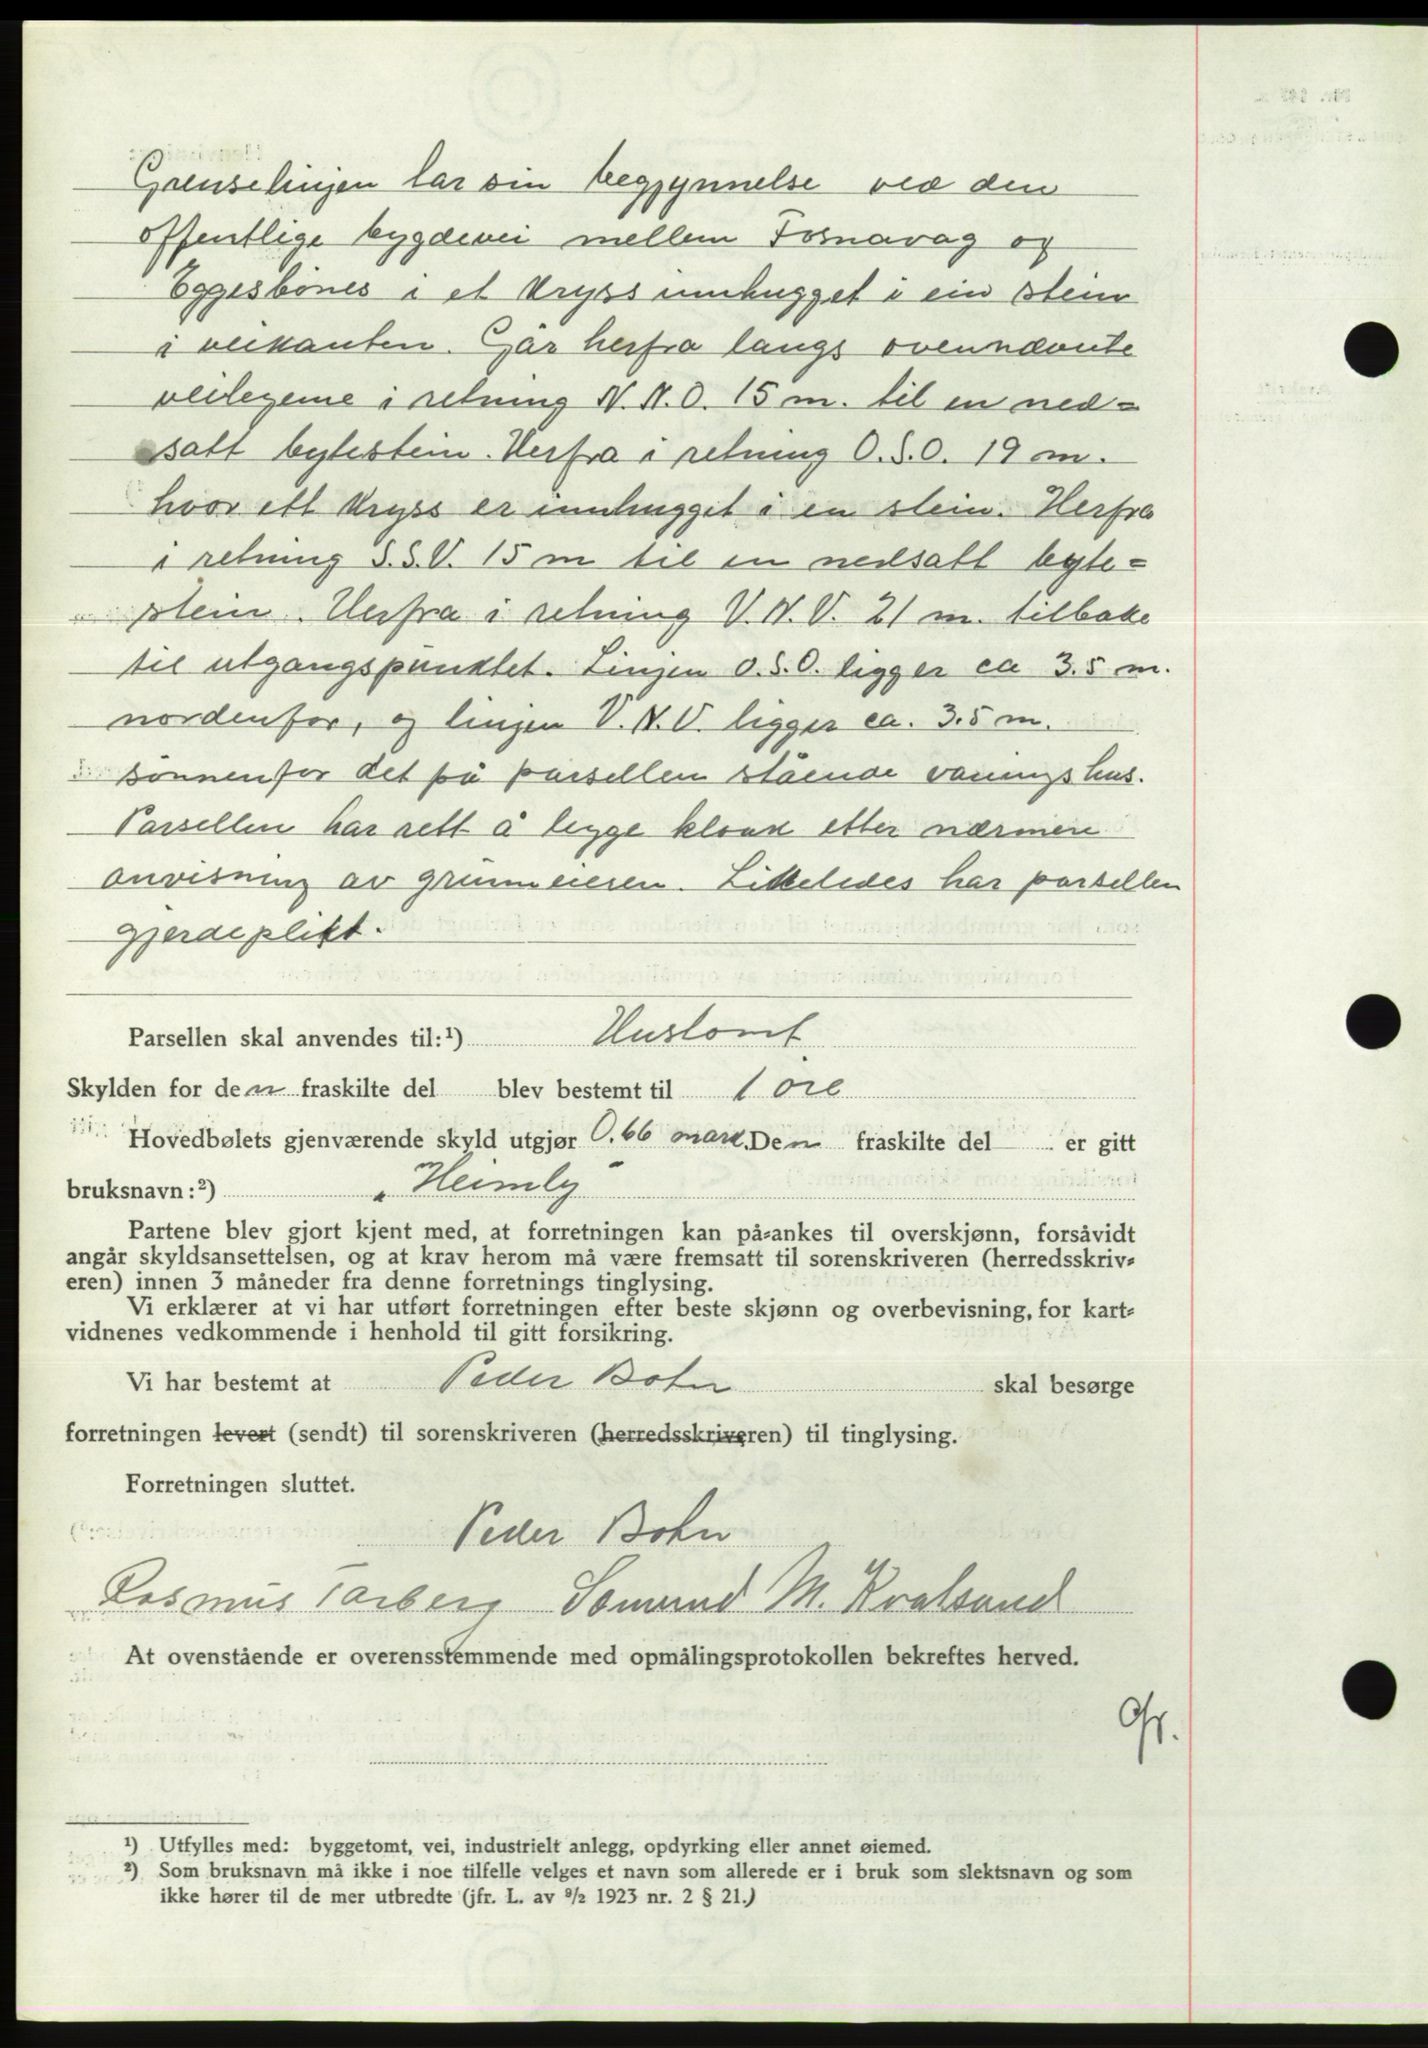 Grenselinjen tar sin begynnelse ved den
offentlige bygdevei mellem Fosnavag og
Eggesbönes i et kryss innhugget i ein stein
i veikanten. Går herfra langs ovennevnte
veilegeme i retning N.N.O. 15 m. til en ned=
satt bytestein. Herfra i retning O.S.O. 19 m.
hvor ett kryss er innhugget i en stein. Herfra
i retning S.S.V. 15 m til en nedsatt byte=
stein. Herfra i retning V.N.V. 21 m. tilbake
til utgangspunktet. Linjen O.S.O. ligger ca 3.5 m.
nordenfor, og linjen V.N.V. ligger ca. 3.5 m.
sönnenfor det på parsellen stående våningshus.
Parsellen har rett å legge kloak etter nærmere
anvisning av grunneieren. Likeledes har parsellen
gjerdeplikt.
Parsellen skal anvendes til:¹) Hustomt
Skylden for den fraskilte del blev bestemt til 1 öre
Hovedbølets gjenværende skyld utgjør 0.66 mark. Den fraskilte del er gitt
bruksnavn:²) "Heimly"
Partene blev gjort kjent med, at forretningen kan på-ankes til overskjønn, forsåvidt
angår skyldsansettelsen, og at krav herom må være fremsatt til sorenskriveren (herredsskriv=
eren) innen 3 måneder fra denne forretnings tinglysing.
Vi erklærer at vi har utført forretningen efter beste skjønn og overbevisning, for kart=
vidnenes vedkommende i henhold til gitt forsikring.
Vi har bestemt at Peder Bohn skal besørge
forretningen levert (sendt) til sorenskriveren (herredsskriveren) til tinglysing.
Forretningen sluttet.
Peder Bohn
Rasmus Tarberg Sömund M. Kvalsund
At ovenstående er overensstemmende med opmålingsprotokollen bekreftes herved.
¹) Utfylles med: byggetomt, vei, industrielt anlegg, opdyrking eller annet øiemed.
²) Som bruksnavn må ikke i noe tilfelle velges et navn som allerede er i bruk som slektsnavn og som
ikke hører til de mer utbredte (jfr. L. av ⁹/₂ 1923 nr. 2 § 21.)